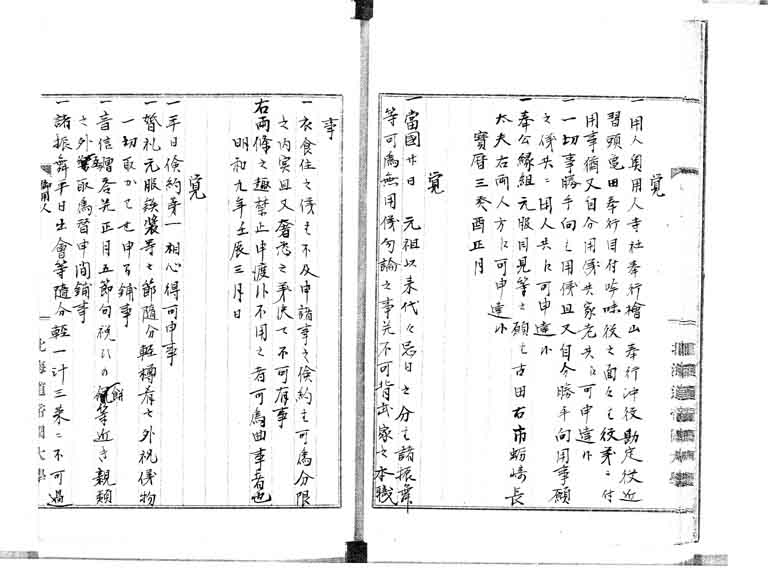 覚
一用人奥用人寺社奉行檜山奉行沖役勘定役近
習頭亀田奉行目付吟味役之面々之役筋ニ付
用事儕又自分用儀共家老共江可申達事
一一切事勝手向之用儀且又自分勝手向用事願
之儀共ニ用人共江可申達事
一奉公縁組元服目見等之願之古田右市蛎崎長
太夫右両人方江可申達事
宝暦三癸酉正月
覚
一當國廿日 元祖以来代々忌日之分之諸振舞
等可為無用儀勿論之事并不可背武家之本職
事
一衣食住之儀は不及申諸事之倹約之可為分限
之内実且又奢悪之筆決て不可有事
右両條之趣禁止申渡以不用之者可為曲事者也
明和九年壬辰三月日
覚
一平日倹約第一相心得可申事
一婚礼元服袴装等之節随分軽樽肴七外祝儀物
一切取かわせ申間鋪事
一音信贈答先正月五節句祝ひの餅等近き親類
之外取為替申間鋪事
一諸振舞平日出會等随分軽一汁三菜ニ不可過
御用人
北海道帝国大学
北海道帝国大学